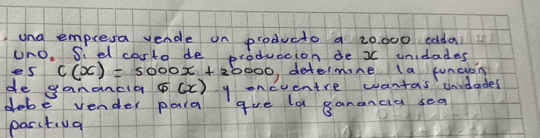 . una empresa vende un producto a 20.000 cada
uno. Si el costo de produccion de x unidades
es C(x) = 5000x + 20000, determine la función
de ganancia G (x) y encuentre cuantas unidades
debe vender para que la ganancia sea
positiva